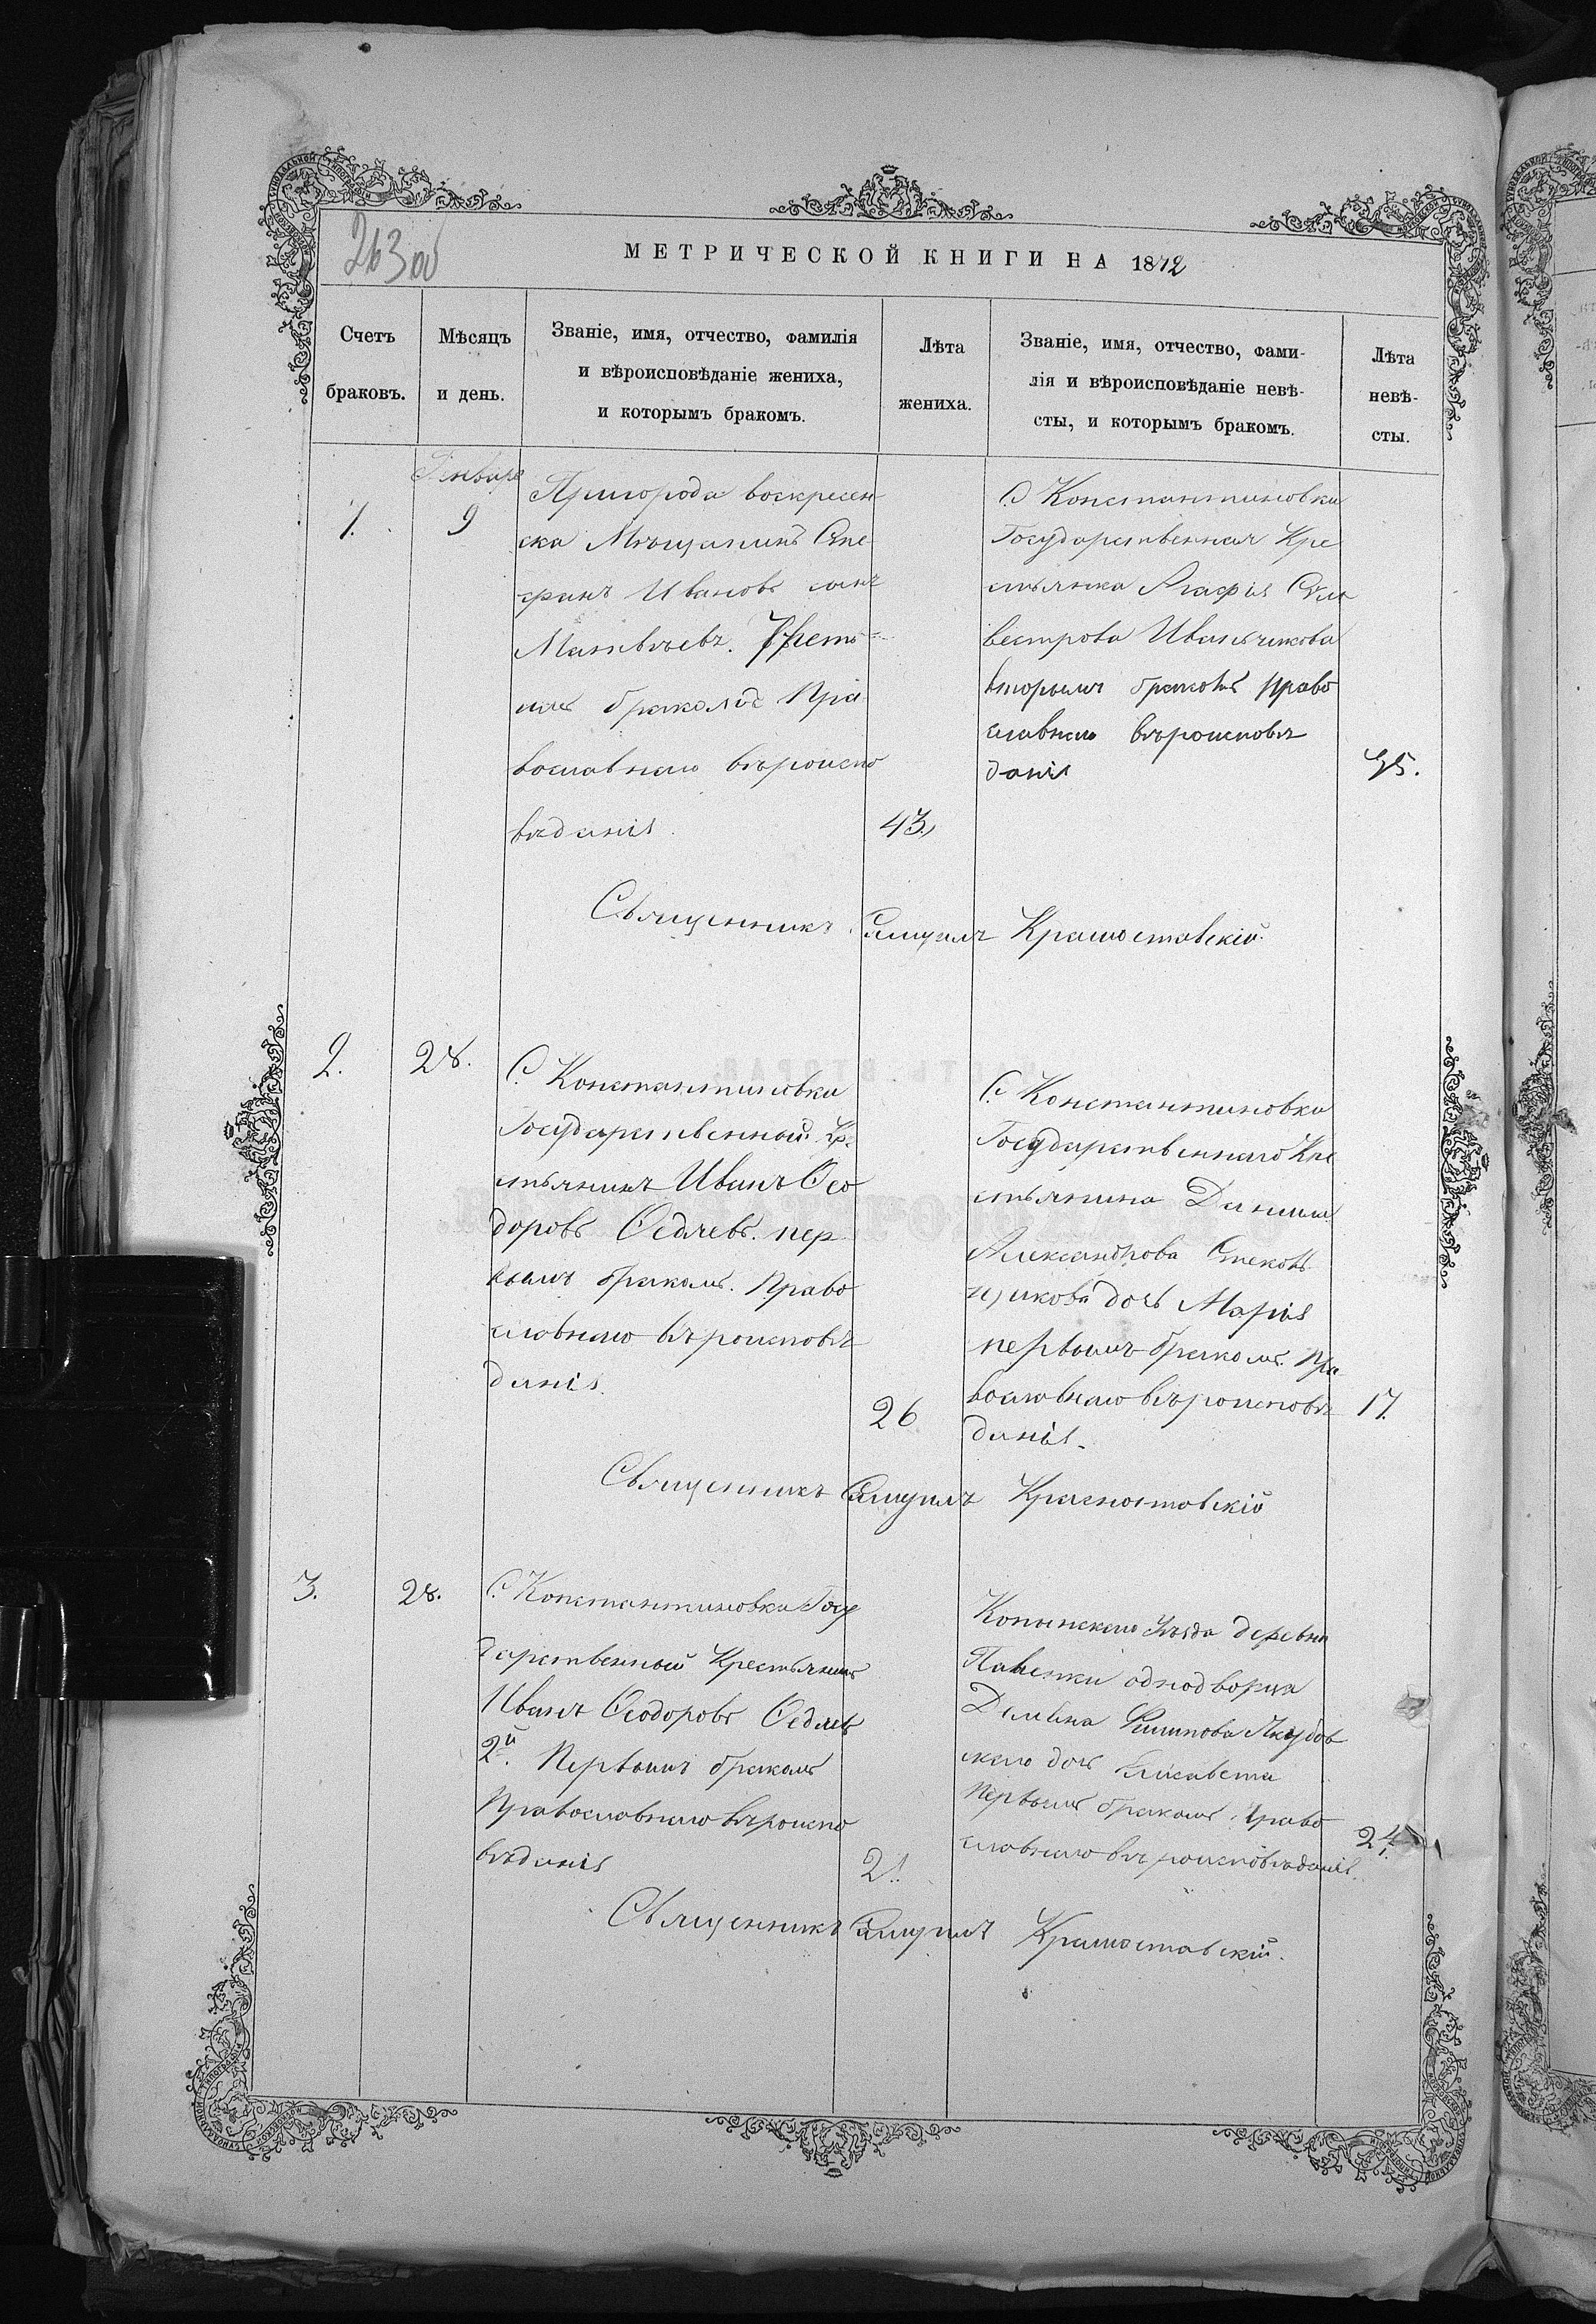 263об
МЕТРИЧЕСКОЙ КНИГИ НА 1872
Счетъ
браковъ.
Мѣсяцъ
и день.
Званіе, имя, отчество, фамилія
и вѣроисповѣданіе жениха,
и которымъ бракомъ.
Лѣта
жениха.
Званіе, имя, отчество, фами-
лія и вѣроисповѣданіе невѣ-
сты, и которымъ бракомъ.
Лѣта
невѣ-
сты.
1.
Января
9
Пригорода воскресен
ска Мѣщанинъ Сте
фанъ Ивановъ сынъ
Матвѣевъ. Треть
имъ бракомъ Пра
вославнаго вѣроиспо
вѣданія.
43.
С. Константиновки
Государственная Кре
стьянка Агафія Сил
вестрова Иванчикова
вторымъ бракомъ право
славнаго вѣроисповѣ
данія
35.
Священникъ Самуилъ Красноставскій.
2.
28.
С. Константиновки
Государственный Кр.
стьянинъ Иванъ Ѳео
доровъ Седлевъ. пер
вымъ бракомъ. Право
славнаго вѣроисповѣ
данія.
26
С. Константиновки
Государственнаго Кре
стьянина Данила
Александрова
дочь Марія
первымъ бракомъ. Пра
вославнаго вѣроисповѣ
данія.
17.
Священникъ Самуилъ Красноставскій
3.
28.
С. Константиновки Госу
дарственный Крестьянинъ
Иванъ Ѳеодоровъ Седлевъ
2й. Первымъ бракомъ
Православнаго вѣроиспо
вѣданія
21.
уѣзда деревни
однодворца
Филипова Якубов
скаго дочь Елисавета
Первымъ бракомъ. Право
славнаго вѣроисповѣданія.
24.
Священникъ Самуилъ Красноставскій.